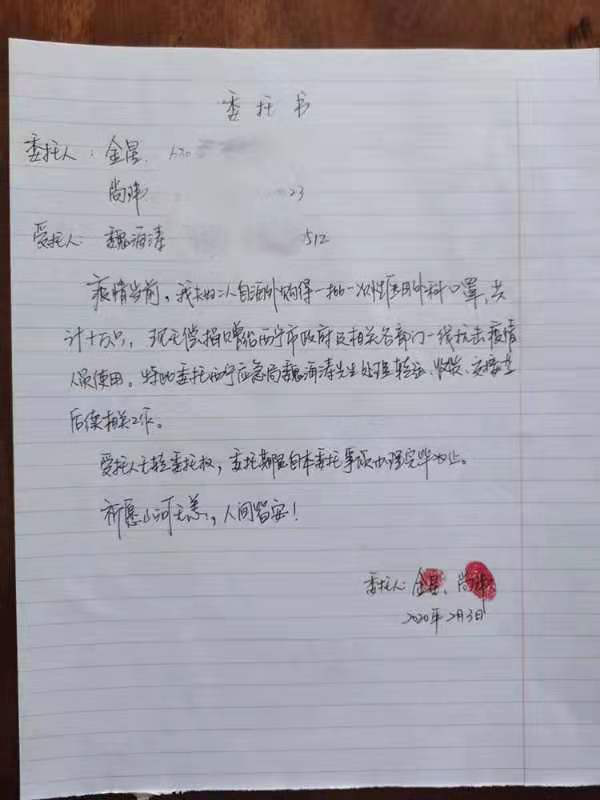 委托书
委托人：金星
尚玮 23
受托人：魏海涛 512
疫情当前，我夫妇二人自海外购得一批一次性医用外科口罩，共
计十万只，现无偿捐赠给西宁市政府及相关各部门一线抗击疫情
人员使用。特此委托西宁应急局魏海涛先生处理验证、收发、安排等
后续相关工作。
受托人无转委托权，委托期限自本委托事项办理完毕为止。
祈愿山河无恙，人间皆安！
委托人：金星、尚玮
2020年2月3日